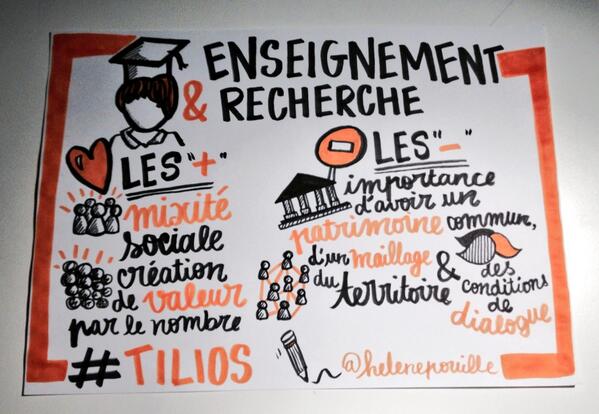 ENSEIGNEMENT
& RECHERCHE
LES "+"
mixité
sociale
création
de valeur
par le nombre
# TILIOS
LES "-"
importance
d'avoir un
patrimoine commun,
d'un maillage
du territoire
& des
conditions
de
dialogue
@helenepouille